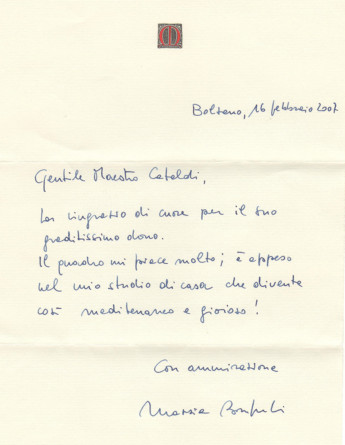 Bolzano, 16 febbraio 2007
Gentile Maestro Cataldi,
La ringrazio di cuore per il suo
graditissimo dono.
Il quadro mi piace molto; è appeso
nel mio studio di casa che diventa
così mediterraneo e gioioso!
Con ammirazione